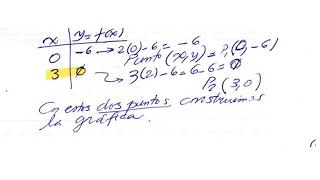 x | y = f(x)
0 | -6 → 2(0)-6 = -6
Punto (x,y) = P₁(0,-6)
3 | 0 → 3(2)-6=6-6=0
P₂(3,0)
Con estos dos puntos construimos
la gráfica.